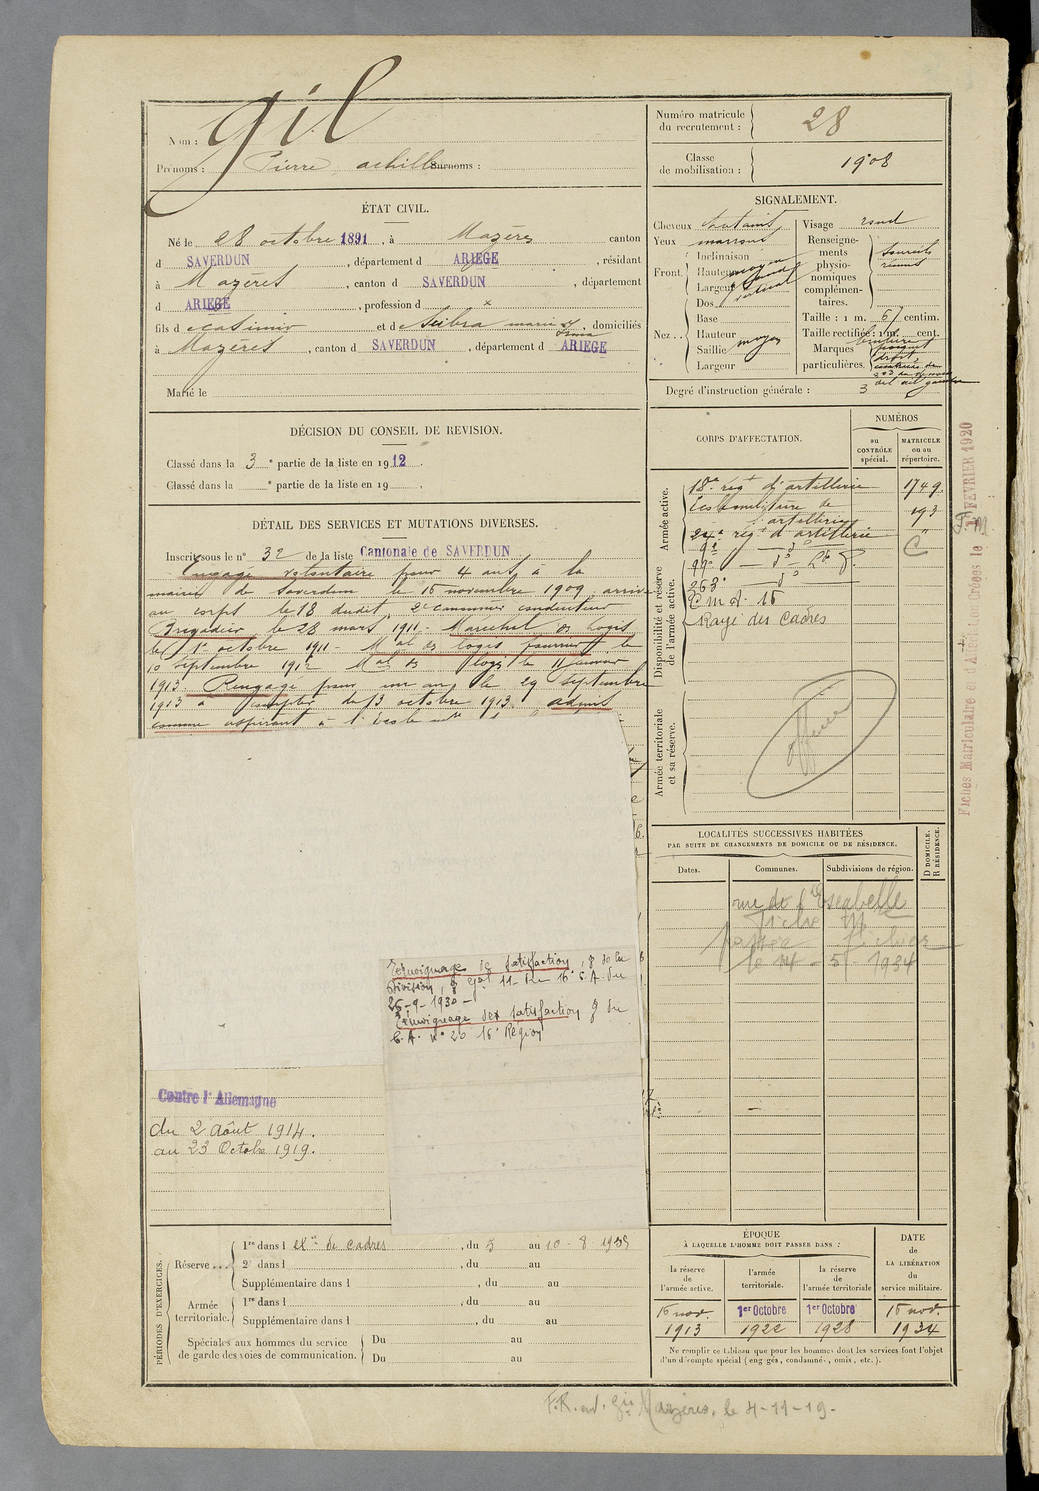 Nom : Gil
Prénoms : Pierre Achille Surnoms :
ÉTAT CIVIL.
Né le 28 octobre 1891, à Mazères canton
d SAVERDUN, département d ARIEGE, résidant
à Mazères, canton d SAVERDUN, département
d ARIEGE, profession d x
fils d Casimir et d Marie, domiciliés
à Mazères, canton d SAVERDUN, département d ARIEGE
Marié le
DÉCISION DU CONSEIL DE REVISION.
Classé dans la 3e partie de la liste en 1912.
Classé dans la e partie de la liste en 19 .
DÉTAIL DES SERVICES ET MUTATIONS DIVERSES.
Inscrit sous le n° 32 de la liste Cantonale de SAVERDUN
Engagé volontaire pour 4 ans à la
mairie de Saverdun le 16 novembre 1909, arrivé
au corps le 18 dudit, 2e canonnier conducteur
Brigadier le 28 mars 1911 - Maréchal des logis
le 1er octobre 1911 - Mal des logis fourrier le
10 septembre 1912 Mal des logis le 11 janvier
1913. Rengagé pour un an, le 29 septembre
1913 à compter du 3 octobre 1913, admis
comme aspirant à l'école
Témoignage de satisfaction,
Division, Gal 11- du 16e C.A. du
25-9-1930 -
Témoignage de satisfaction du
C.A. n° 20 16e Région
Contre l'Allemagne
du 2 Août 1914.
au 23 Octobre 1919.
PÉRIODES D'EXERCICES.
Réserve ...
1re dans l de cadres, du 5 au 10-8 1935
2e dans l , du au
Supplémentaire dans l , du au
Armée territoriale.
1re dans l , du au
Supplémentaire dans l , du au
Spéciales aux hommes du service
de garde des voies de communication.
Du au
Du au
Numéro matricule
du recrutement : 28
Classe
de mobilisation : 1908
SIGNALEMENT.
Cheveux chatains
Yeux marrons
Front.
Inclinaison
Hauteur moyen
Largeur
Nez . .
Dos vertical
Base
Hauteur
Saillie moyen
Largeur
Visage rond
Renseigne-
ments
physio-
nomiques
complémen-
taires.
sourcils
réunis
Taille : 1 m. 61 centim.
Taille rectifiée : 1 m. cent.
Marques
particulières.
Degré d'instruction générale : 3
CORPS D'AFFECTATION.
NUMÉROS
au
CONTRÔLE
spécial.
MATRICULE
ou au
répertoire.
Armée active.
18e regt d'artillerie 1749
Ecole militaire de
l'artillerie 193
24e régt d'artillerie "
Disponibilité et réserve
de l'armée active.
9e - do
99e - do
263e do
C m d. 16
Rayé des Cadres
Armée territoriale
et sa réserve.
Officier
LOCALITÉS SUCCESSIVES HABITÉES
PAR SUITE DE CHANGEMENTS DE DOMICILE OU DE RÉSIDENCE.
Dates.
Communes.
Subdivisions de région.
D DOMICILE.
R RÉSIDENCE.
rue de l'Escabelle
Fiche M
passée Fichier
le 14 - 5 - 1934
ÉPOQUE
À LAQUELLE L'HOMME DOIT PASSER DANS :
la réserve
de
l'armée active.
l'armée
territoriale.
la réserve
de
l'armée territoriale
DATE
de
LA LIBÉRATION
du
service militaire.
16 nov. 1913
1er Octobre 1922
1er Octobre 1928
16 nov. 1934
Ne remplir ce tableau que pour les hommes dont les services font l'objet
d'un décompte spécial (engagés, condamnés, omis, etc.).
F.R. Mazères, le 4-11-19-
Fiches Matriculaire et d'Affectation Créées le 1 FEVRIER 1920